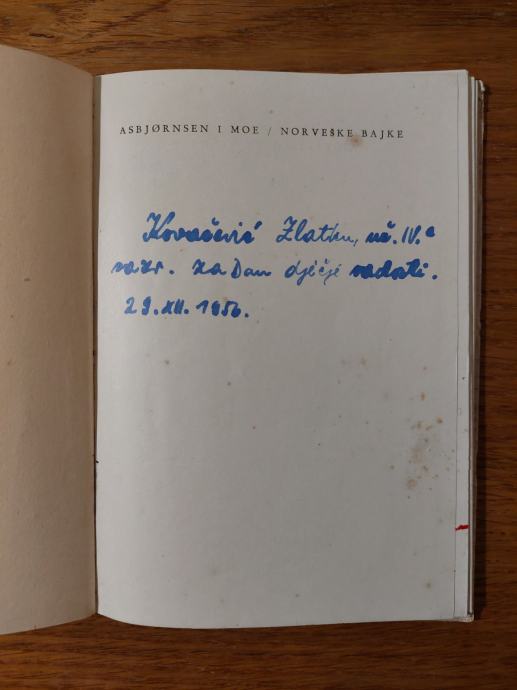 ASBJØRNSEN I MOE / NORVEŠKE BAJKE
Kovačević Zlatku, uč. IV.a
razr. za Dan dječje radosti.
29. XII. 1956.